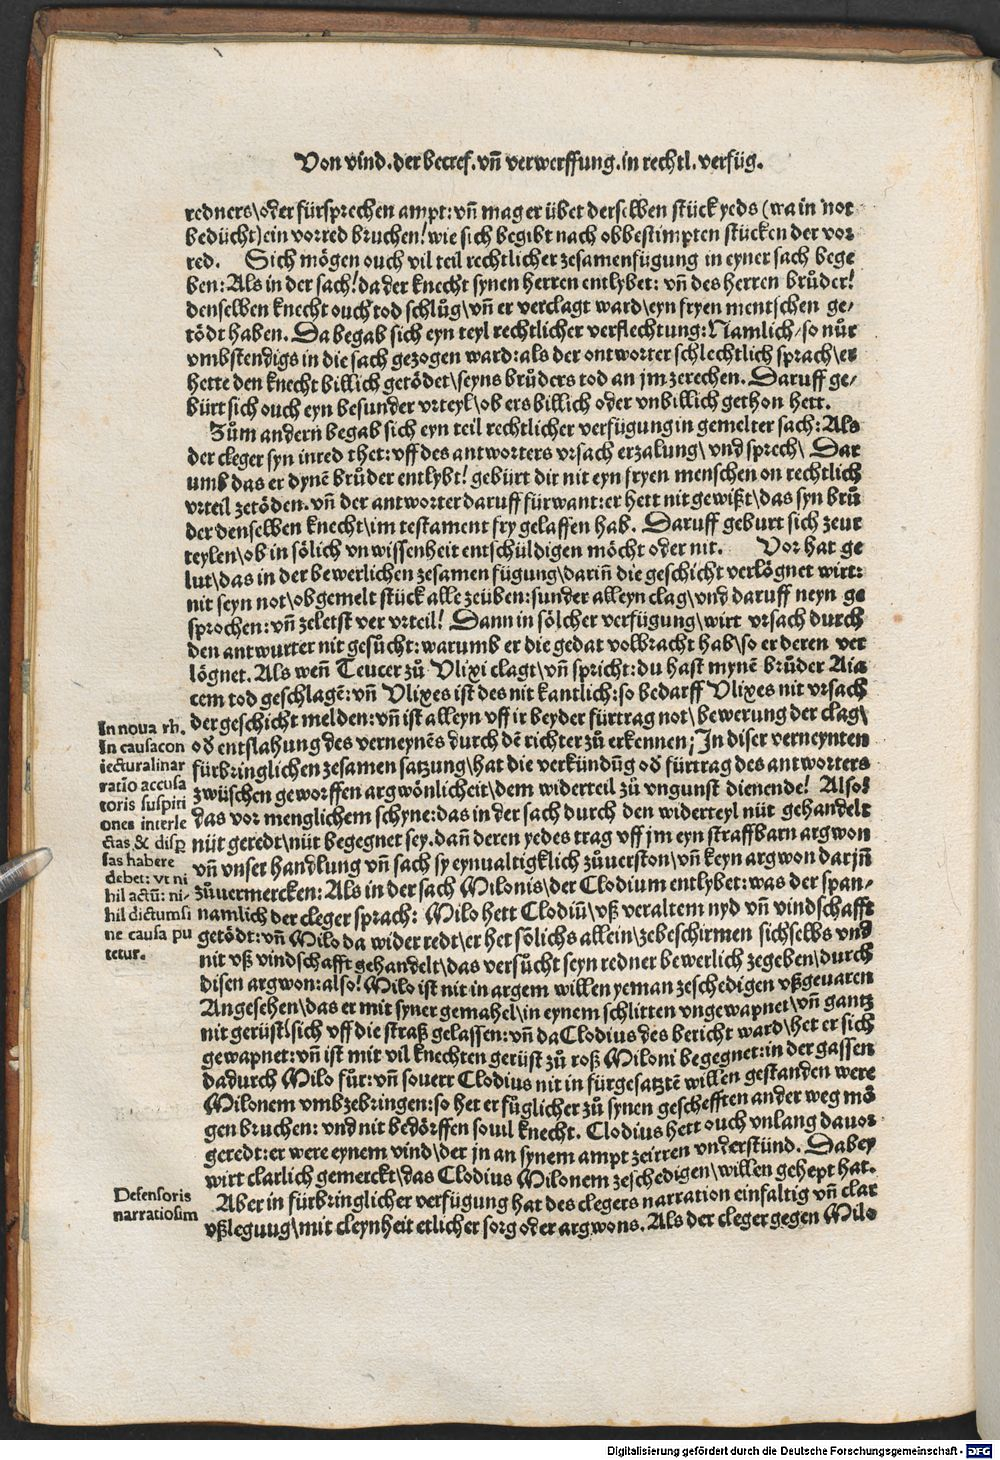 Von vind. der betref. vñ verwerffung. in rechtl. verfüg.
redners\oder fürsprechen ampt: vñ mag er übet derselben stück yeds (wa in not
bedücht) ein vorred bruchen! wie sich begibt nach obbestimpten stücken der vor
red. Sich mögen ouch vil teil rechtlicher zesamenfügung in eyner sach bege
ben: Als in der sach! da der knecht synen herren entlybet: vñ des herren brůder!
denselben knecht ouch tod schlůg\vñ er verclagt ward/eyn fryen mentschen ge-
tödt haben. Da begab sich eyn teyl rechtlicher verflechtung: Namlich/so nůr
vmbstendigs in die sach gezogen ward: als der ontworter schlechtlich sprach\er
hette den knecht billich getödet\seyns brůders tod an jm zerechen. Daruff ge-
bürt sich ouch eyn besunder vrteyl\ob ers billich oder vnbillich gethon hett.
Zům andern begab sich eyn teil rechtlicher verfügung in gemelter sach: Als
der cleger syn inred thet: vff des antworters vrsach erzalung\ vnd sprech\ Dar
umb das er dynē brůder entlybt! gebürt dir nit eyn fryen menschen on rechtlich
vrteil zetöden. vñ der antworter daruff fürwant: er hett nit gewißt\das syn brů
der denselben knecht\im testament fry gelassen hab. Daruff geburt sich zeur
teylen\ob in sölich vnwissenheit entschüldigen möcht oder nit. Vor hat ge
lut\das in der bewerlichen zesamen fügung\dariñ die geschicht verlögnet wirt:
nit seyn not\obgemelt stück alle zeüben: sunder alleyn clag\vnd daruff neyn ge
sprochen: vñ zeletst ver vrteil! Dann in sölcher verfügung\wirt vrsach durch
den antwurter nit gesůcht: warumb er die gedat volbracht hab\so er deren ver
lögnet. Als weñ Teucer zů Vlixi clagt\vñ spricht: du hast mynē brůder Aia
cem tod geschlagē: vñ Vlixes ist des nit kantlich: so bedarff Vlixes nit vrsach
der geschicht melden: vñ ist alleyn vff ir beyder fürtrag not\ bewerung der clag\
od entslahung des verneynēs durch dē richter zů erkennen; In diser verneynten
fürbringlichen zesamen satzung\hat die verkündūg od fürtrag des antworters
zwüschen geworffen argwönlicheit\dem widerteil zů vngunst dienende! Also!
das vor menglichem schyne: das in der sach durch den widerteyl nüt gehandelt
nüt geredt\nüt begegnet sey. dañ deren yedes trag vff jm eyn straffbarn argwon
vñ vnser handlung vñ sach sy eynualtigklich zůuerston\vñ keyn argwon darjñ
zůuermercken: Als in der sach Milonis\der Clodium entlybet: was der span-
namlich der cleger sprach: Milo hett Clodiū\vß veraltem nyd vñ vindschafft
getödt: vñ Milo da wider redt\er het sölichs allein\zebeschirmen sichselbs vnd
nit vß vindschafft gehandelt\das versůcht seyn redner bewerlich zegeben\durch
disen argwon: also! Milo ist nit in argem willen yeman zeschedigen vßgeuaren
Angesehen\das er mit syner gemahel\in eynem schlitten vngewapnet\vñ gantz
nit gerüst! sich vff die straß gelassen: vñ da Clodius des bericht ward\het er sich
gewapnet: vñ ist mit vil knechten gerüst zů roß Miloni begegnet: in der gassen
dadurch Milo fůr: vñ souerr Clodius nit in fürgesatztē willen gestanden were
Milonem vmbzebringen: so het er fůglicher zů synen geschefften ander weg mö
gen bruchen: vnd nit bedörffen souil knecht. Clodius hett ouch vnlang dauor
geredt: er were eynem vind\der jn an synem ampt zeirren vnderstünd. Dabey
wirt clarlich gemerckt\das Clodius Milonem zeschedigen\willen gehept hat.
Aber in fürbringlicher verfügung hat des clegers narration einfaltig vñ clar
vßleguug\mit cleynheit etlicher sorg oder argwons. Als der cleger gegen Milo
In noua rh.
In causa con
iecturali nar
ratio accusa
toris suspiti
ones interie
ctas, & disp
sas habere
debet: vt ni
hil actū: ni-
hil dictum si
ne causa pu
tetur.
Defensoris
narratio sim
Digitalisierung gefördert durch die Deutsche Forschungsgemeinschaft - DFG